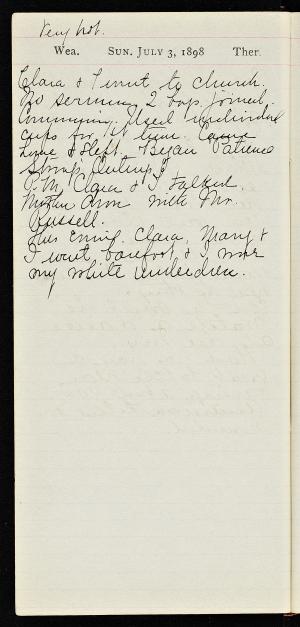 Very hot.
Wea. SUN. JULY 3, 1898 Ther.
Clara & I went to church.
No sermon, 2 boys joined.
Communion. Used individual
cups for 1st time. Came
home & slept. Began Patience
P.M. Clara & I talked.
with Mr.
Russell.
This evening. Clara, Mary &
I went barefoot & I wore
my white underdress.